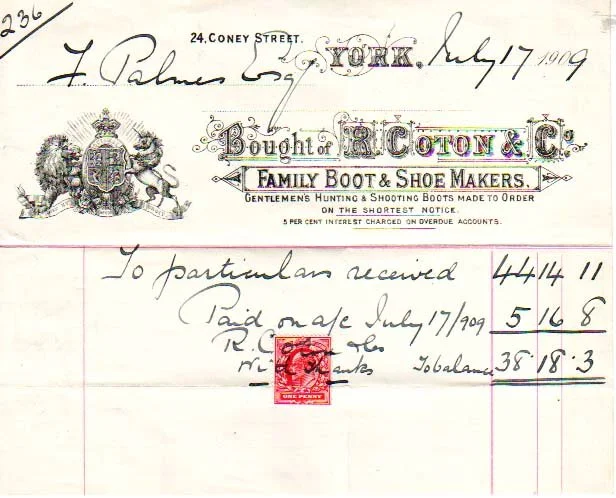 236
24, CONEY STREET.
F Palmes Esq YORK, July 17 1909
Bought of R. COTON & Co
FAMILY BOOT & SHOE MAKERS.
GENTLEMEN'S HUNTING & SHOOTING BOOTS MADE TO ORDER
ON THE SHORTEST NOTICE.
5 PER CENT INTEREST CHARGED ON OVERDUE ACCOUNTS.
To particulars received 44 14 11
Paid on a/c July 17/909 5 16 8
R. Coton & Co
With thanks To balance 38 . 18 . 3
ONE PENNY